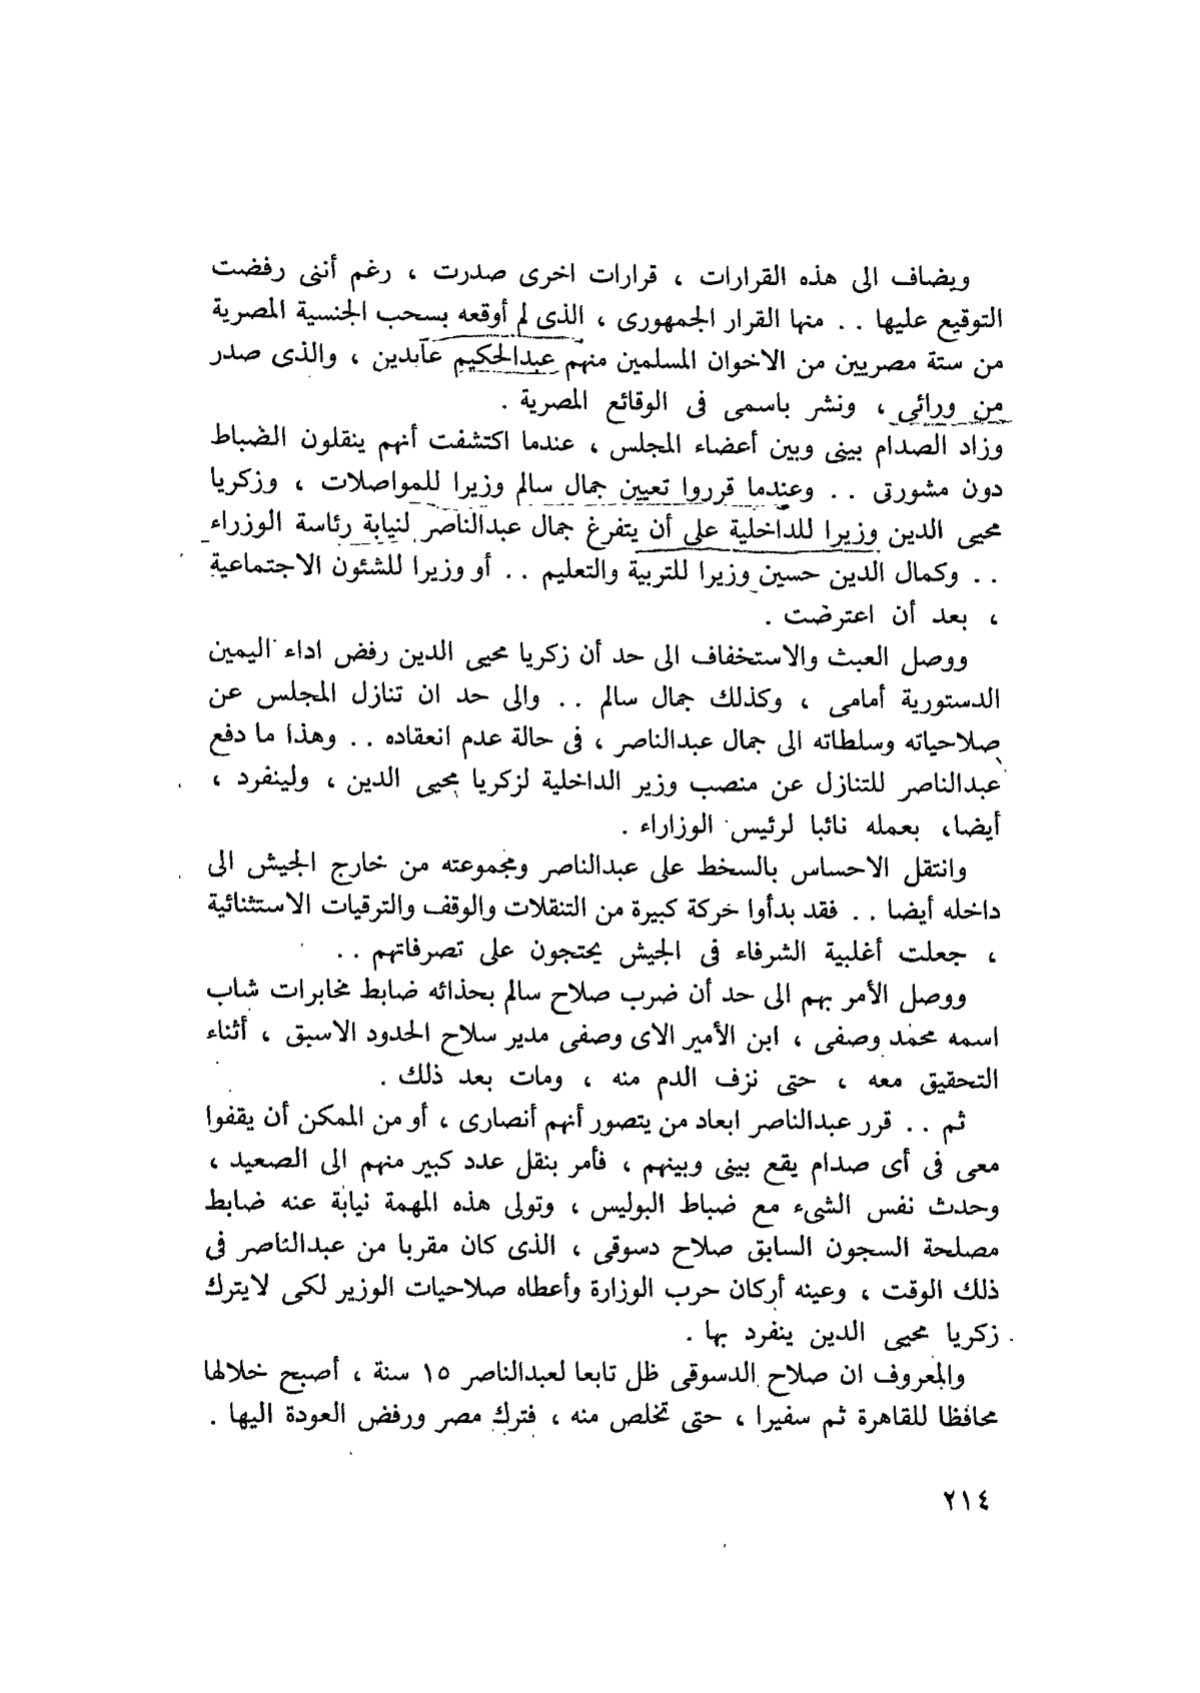 ويضاف الى هذه القرارات ، قرارات اخرى صدرت ، رغم أننى رفضت
التوقيع عليها .. منها القرار الجمهورى ، الذى لم أوقعه بسحب الجنسية المصرية
من ستة مصريين من الاخوان المسلمين منهم عبدالحكيم عابدين ، والذى صدر
من ورائى ، ونشر باسمى فى الوقائع المصرية .
وزاد الصدام بينى وبين أعضاء المجلس ، عندما اكتشفت أنهم ينقلون الضباط
دون مشورتى .. وعندما قرروا تعيين جمال سالم وزيرا للمواصلات ، وزكريا
محيى الدين وزيرا للداخلية على أن يتفرغ جمال عبدالناصر لنيابة رئاسة الوزراء
.. وكمال الدين حسين وزيرا للتربية والتعليم .. أو وزيرا للشئون الاجتماعية
، بعد أن اعترضت .
ووصل العبث والاستخفاف الى حد أن زكريا محيى الدين رفض اداء اليمين
الدستورية أمامى ، وكذلك جمال سالم .. والى حد ان تنازل المجلس عن
صلاحياته وسلطاته الى جمال عبدالناصر ، فى حالة عدم انعقاده .. وهذا ما دفع
عبدالناصر للتنازل عن منصب وزير الداخلية لزكريا محيى الدين ، ولينفرد ،
أيضا، بعمله نائبا لرئيس الوزاراء .
وانتقل الاحساس بالسخط على عبدالناصر ومجموعته من خارج الجيش الى
داخله أيضا .. فقد بدأوا حركة كبيرة من التنقلات والوقف والترقيات الاستثنائية
، جعلت أغلبية الشرفاء فى الجيش يحتجون على تصرفاتهم ..
ووصل الأمر بهم الى حد أن ضرب صلاح سالم بحذائه ضابط مخابرات شاب
اسمه محمد وصفى ، ابن الأمير الاى وصفى مدير سلاح الحدود الاسبق ، أثناء
التحقيق معه ، حتى نزف الدم منه ، ومات بعد ذلك .
ثم .. قرر عبدالناصر ابعاد من يتصور أنهم أنصارى ، أو من الممكن أن يقفوا
معى فى أى صدام يقع بينى وبينهم ، فأمر بنقل عدد كبير منهم الى الصعيد ،
وحدث نفس الشىء مع ضباط البوليس ، وتولى هذه المهمة نيابة عنه ضابط
مصلحة السجون السابق صلاح دسوقى ، الذى كان مقربا من عبدالناصر فى
ذلك الوقت ، وعينه أركان حرب الوزارة وأعطاه صلاحيات الوزير لكى لايترك
زكريا محيى الدين ينفرد بها .
والمعروف ان صلاح الدسوقى ظل تابعا لعبدالناصر ١٥ سنة ، أصبح خلالها
محافظا للقاهرة ثم سفيرا ، حتى تخلص منه ، فترك مصر ورفض العودة اليها .
٢١٤